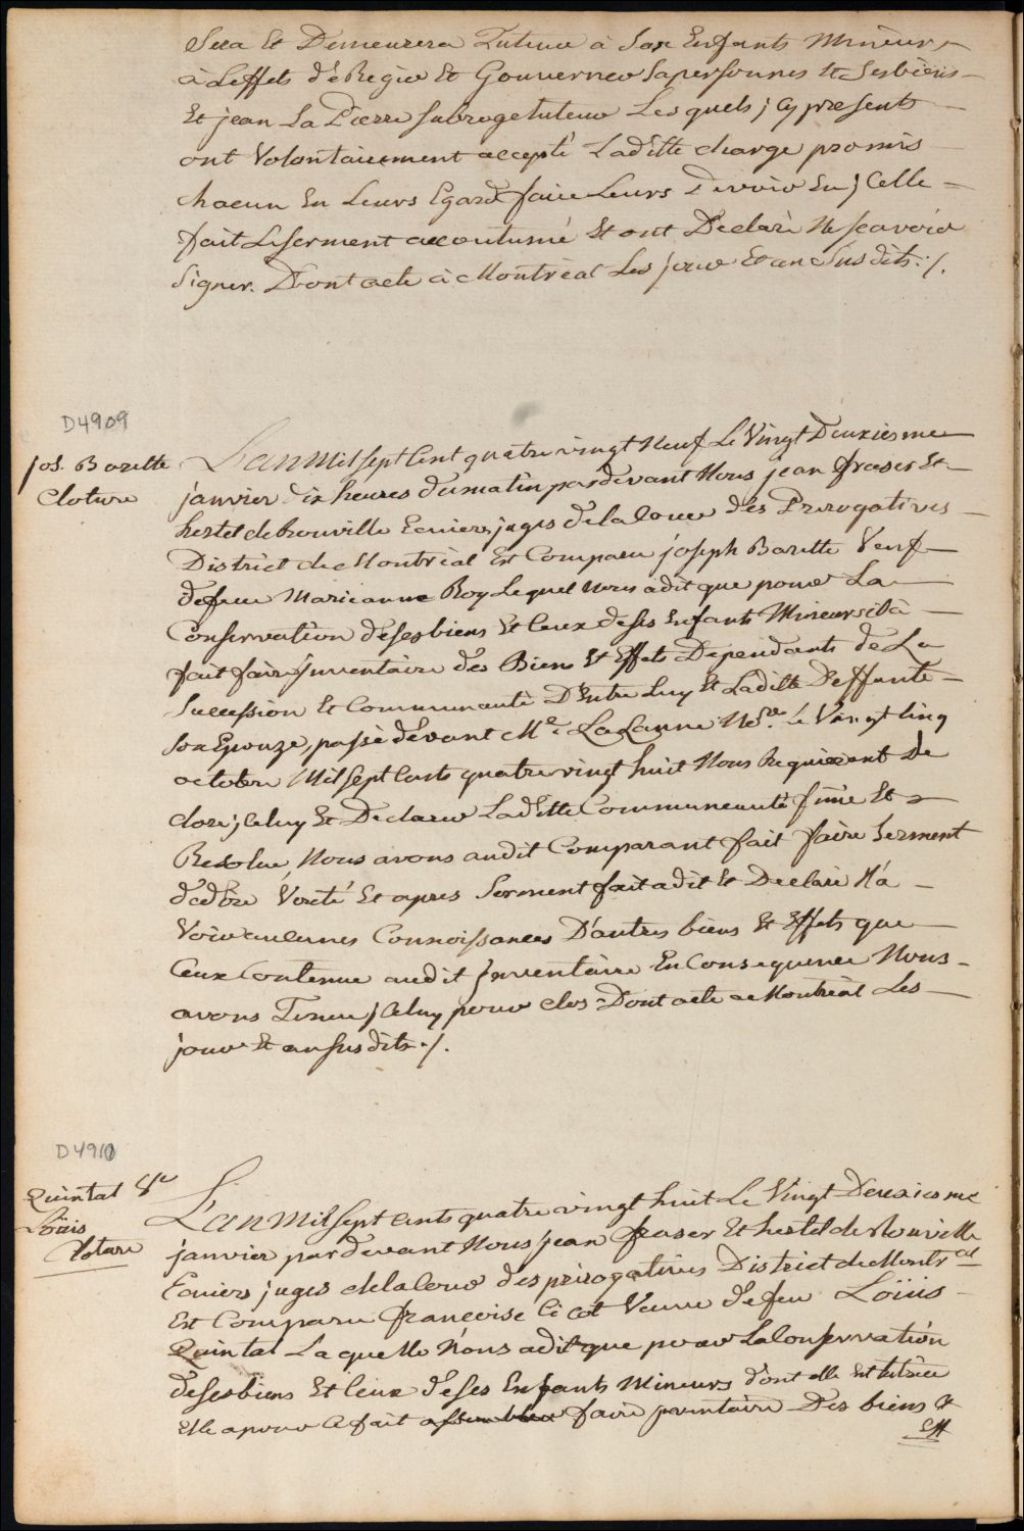 Sera Et Demeurera Tuteur à Ses Enfants Mineurs
à Leffets de Regir Et Gouverner Sapersonnes Et Sesbiens
Et jean La Pierre subrogetuteur Lesquels jcy presents
ont Volontairement accepté Laditte charge promis
chacun En Leurs Egard faire Leurs Devoir En jCelle
fait Leserment accoutumé Et ont Declaré Ne scavoir
signer. Dont acte à Montréal Les jour Et an Sus dits ./.
D4909
jos. Barette
Cloture
L'an Mil sept Cent quatre vingt Neuf Le Vingt Deuxiesme
janvier dix heures dumatin pardevant Nous jean fraser Et
hertel de Rouville Ecuiers juges delaCour des Prerogatives
District de Montréal Est Comparu joseph Barette Veuf
defeue Marieanne Roy Lequel Nous adit que pour La
Conservation desesbiens Et Ceux deses Enfants Mineurs ila
fait faire jnventaire des Biens Et Effets Dependants de La
Succession Et Communauté D'Entre Luy Et Laditte Deffunte
son Epouze, passé dévant Me LaLanne Nore Le Vingt Cinq
octobre Mil sept Cents quatre vingt huit Nous Requierent De
clore jCeluy Et Declarer Laditte Communeauté finie Et
Resolue, Nous avons audit Comparant fait faire Serment
de dire Verité Et apres Serment fait adit Et Declaré N'a
Voir aucunes Connoissances D'autres biens Et Effets que
Ceux Contenue audit jnventaire En Consequence Nous
avons Tenu jCeluy pour clos Dont acte a Montréal Les
jour Et an susdits ./.
D4910
Quintal Ve
Loüis
Cloture
L'an Mil sept Cents quatre vingt huit Le Vingt Deuxiesme
janvier pardevant Nous jean fraser Et hertel de Rouville
Ecuiers juges delaCour des prerogatives District de Montral
Est Comparu francoise Cicot Veuve defeu Loüis
Quintal Laquelle Nous adit que pour LaConservation
desesbiens Et Ceux deses Enfants Mineurs dont elle Est tutrice
Elle apour Ce fait faire jnventaire Des biens &
Eff